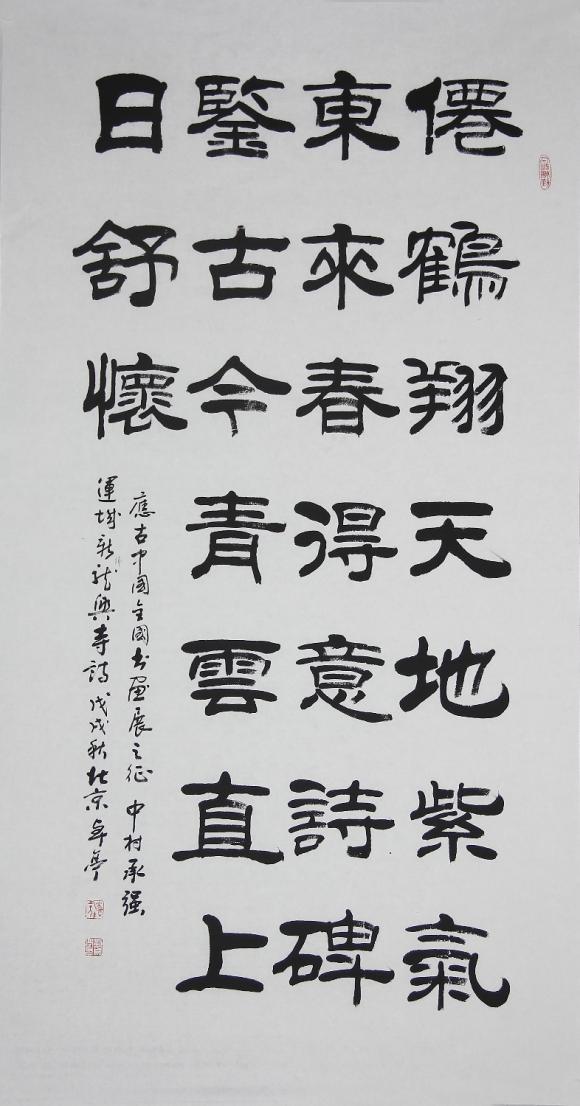 僊鶴翔天地紫氣
東來春得意詩碑
鑒古今青雲直上
日舒懷
應古中國全國书画展之征 中村承强
運城新龍興寺詩 戊戌秋北京